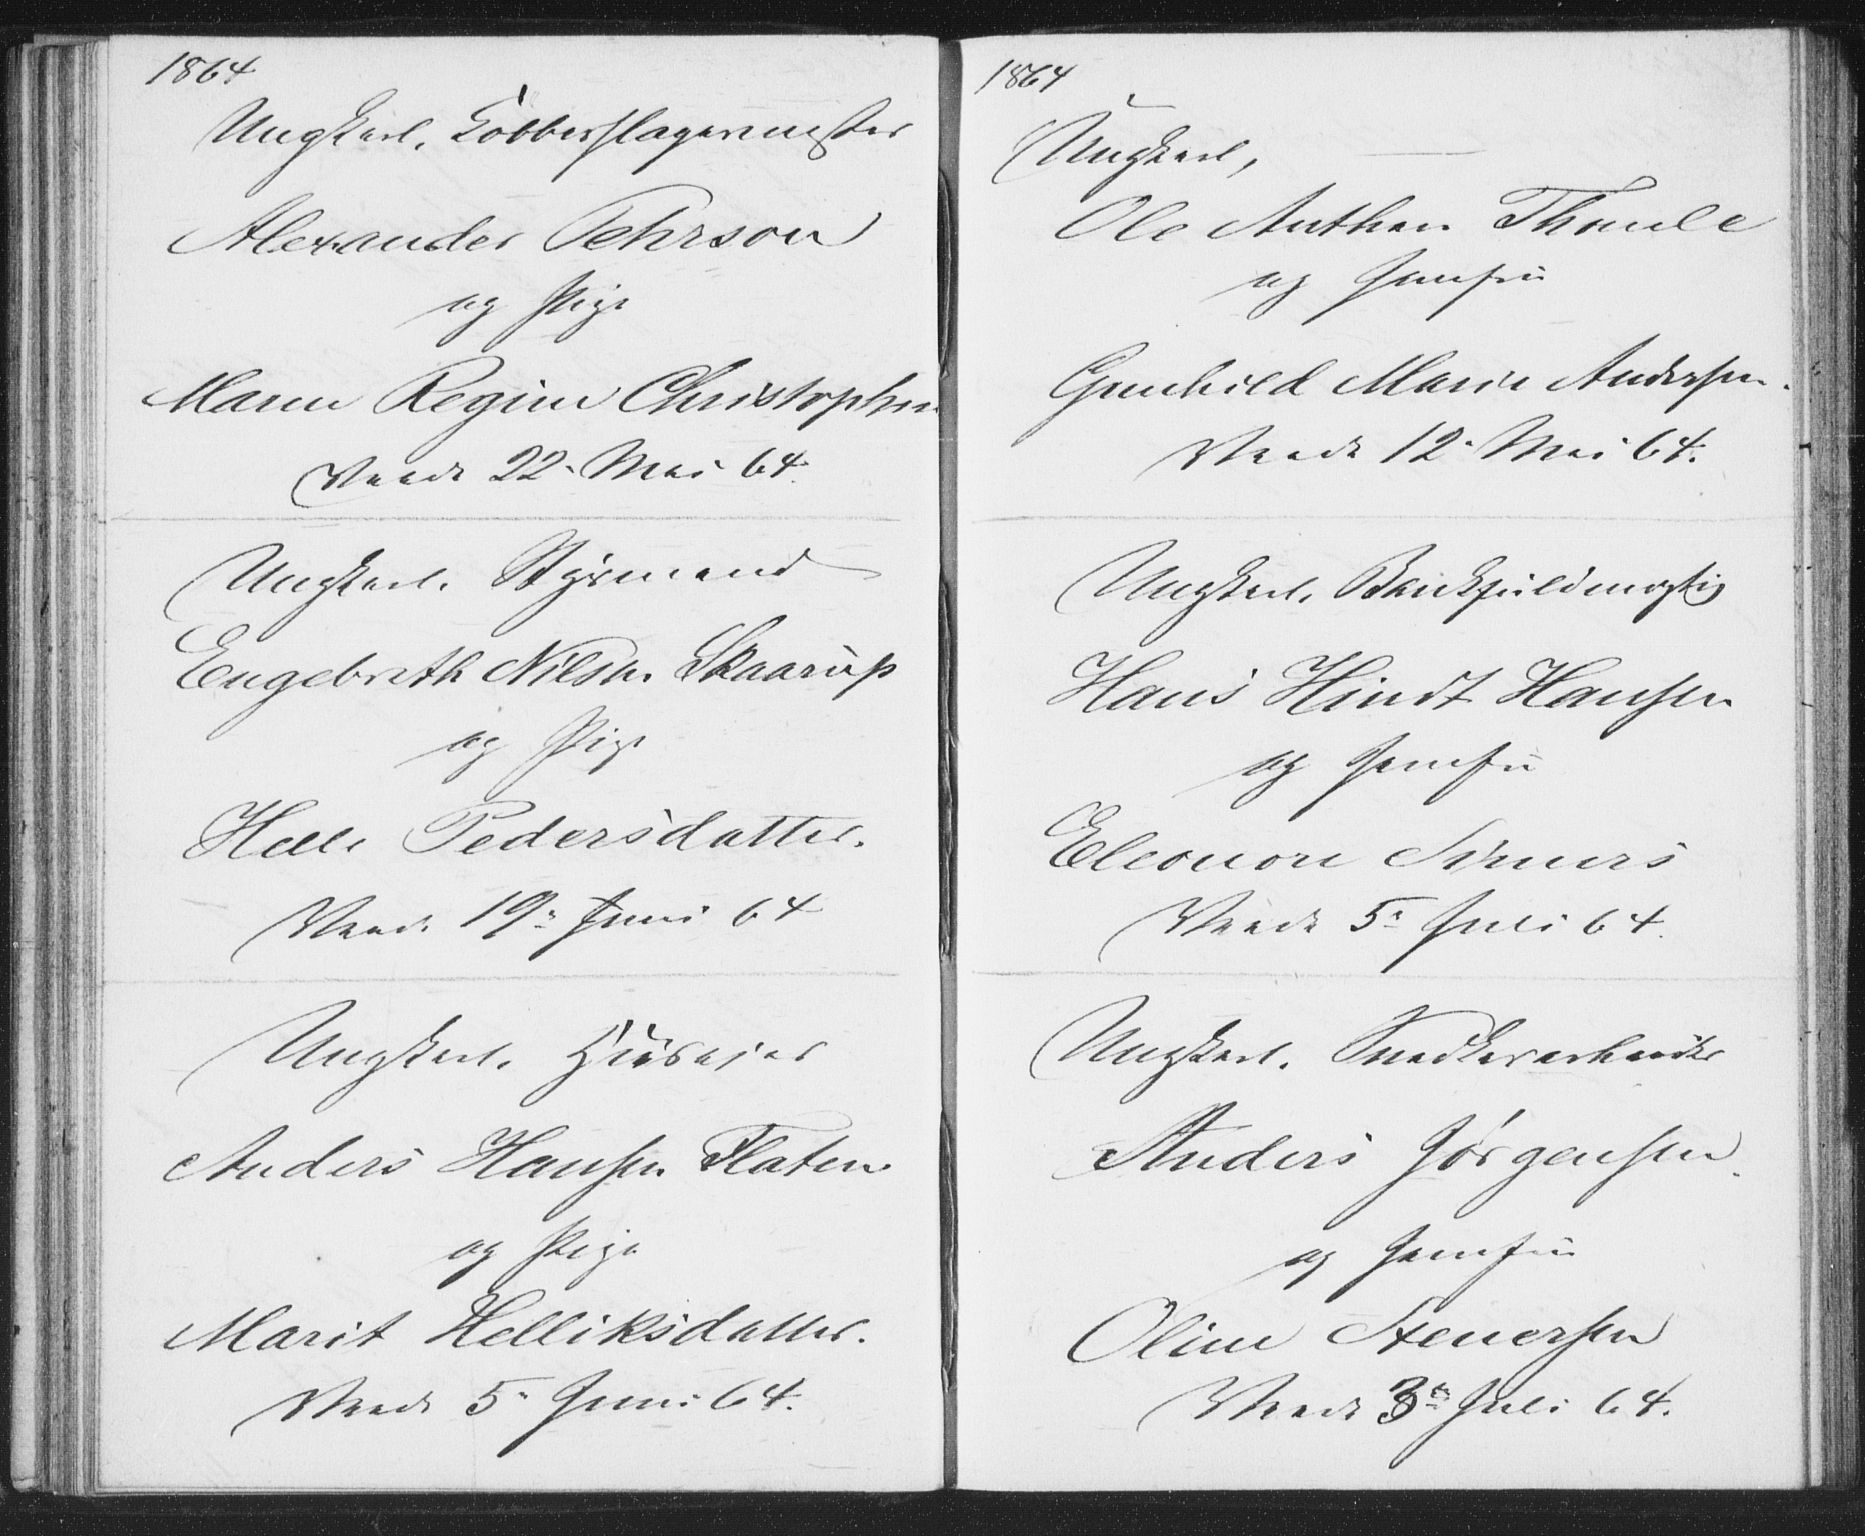 1864
Ungkarl, Kobberslagermester
Alexander Pehrson
og Pige
Maren Regine Christophers
Viede 22. Mai 64.
Ungkarl. Styrmand
Engebreth Nilsen Skaarup
og Pige
Helle Pedersdatter.
Viede 19. Juni 64
Ungkarl. Huseier
Anders Hansen Flaten
og Pige
Marit Helliksdatter.
Viede 5. Juni 64.
1864
Ungkarl,
Ole Anthon Thoule
og Jomfru
Gunhild Marie Andersen.
Viede 12. Mai 64.
Ungkarl. Bankfuldmægtig
Hans Hindt Hansen
og Jomfru
Eleonore Simers
Viede 5. Juli 64.
Ungkarl. Snedkerarbeider
Anders Jörgensen
og Jomfru
Oline Stenersen
Viede 3. Juli 64.